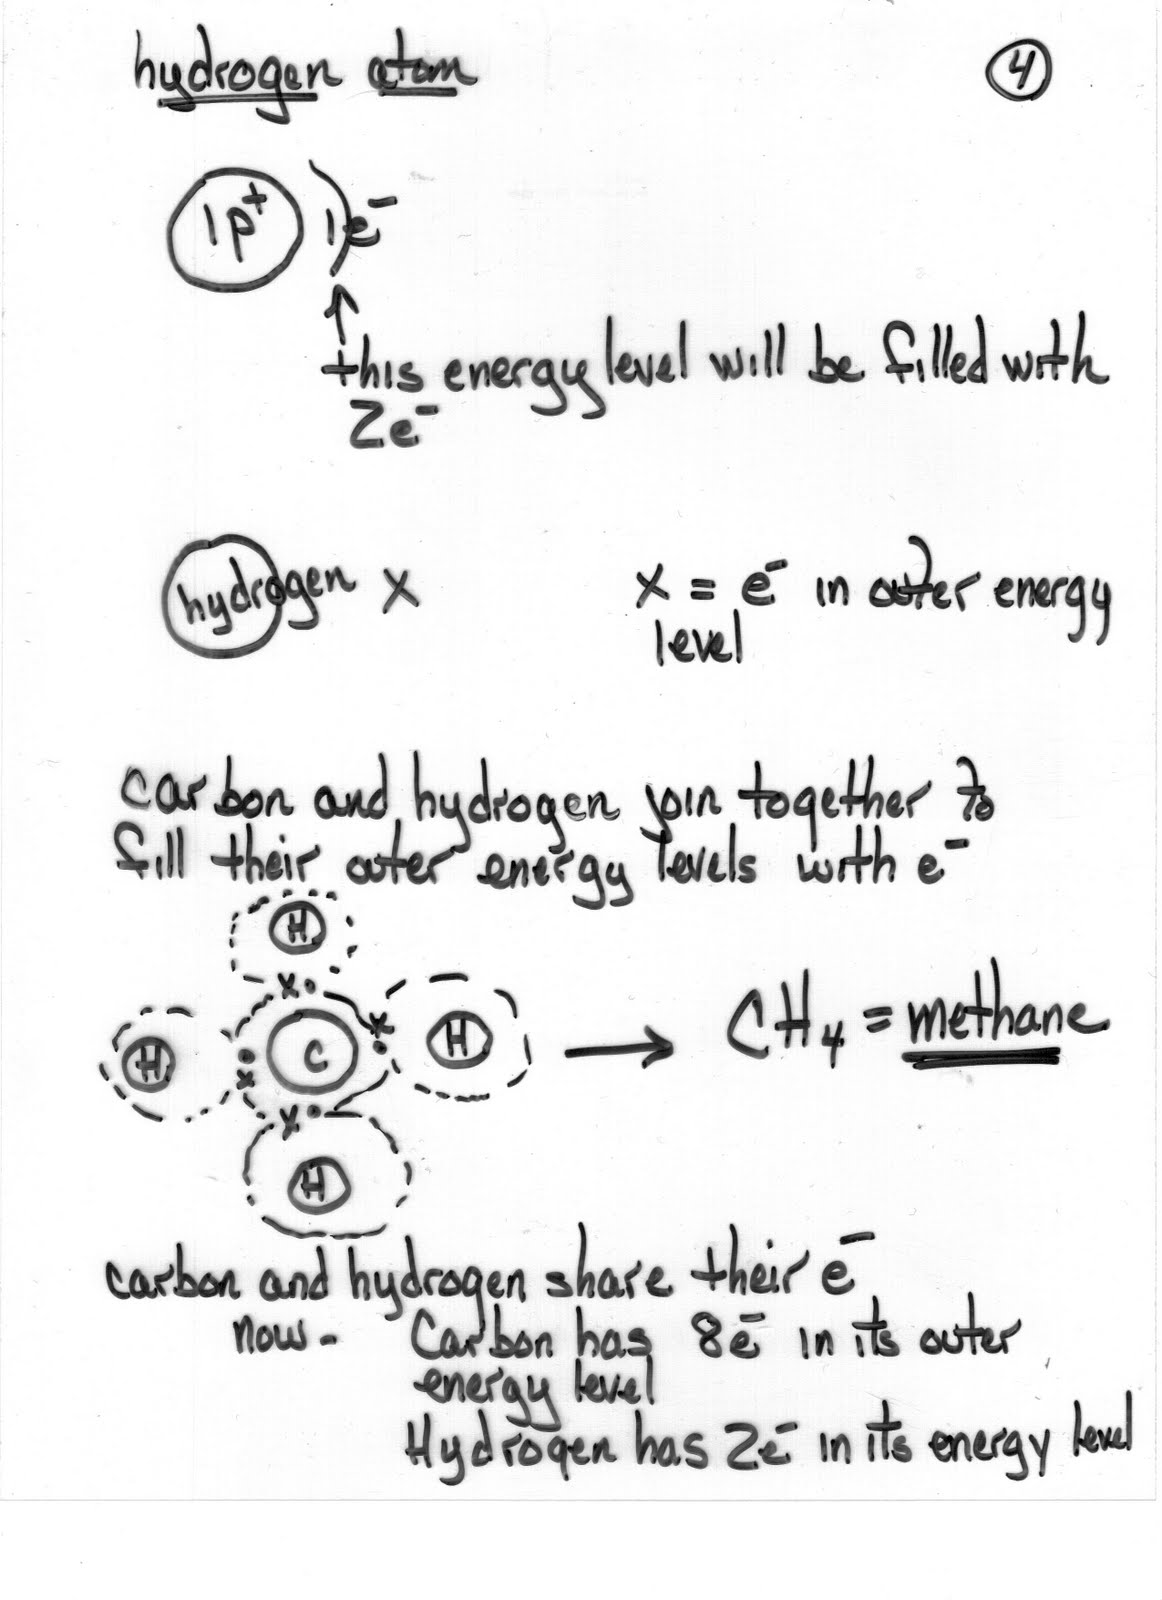 hydrogen atom
4
1p+ 1e-
this energy level will be filled with
2e-
hydrogen x
x = e- in outer energy
level
carbon and hydrogen join together to
fill their outer energy levels with e-
H
x
H C x H → CH4 = methane
x
x
H
carbon and hydrogen share their e-
now - Carbon has 8e- in its outer
energy level
Hydrogen has 2e- in its energy level